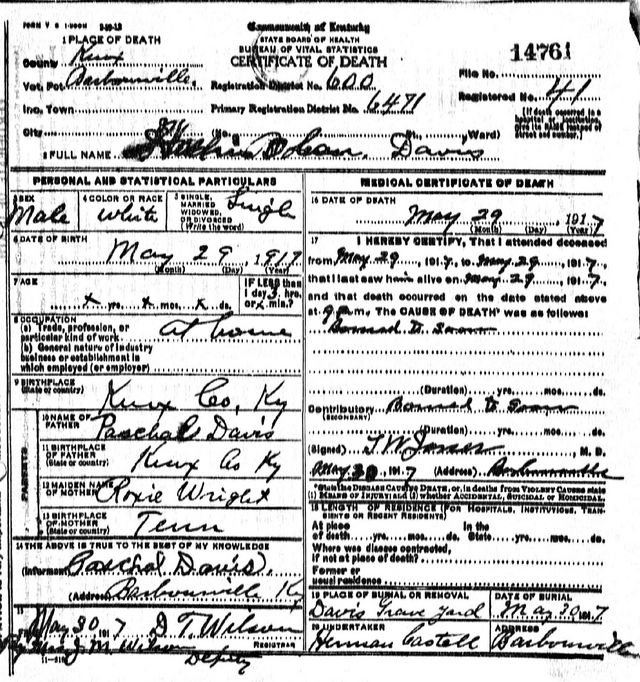 FORM V S 1-
Commonwealth of Kentucky
STATE BOARD OF HEALTH
BUREAU OF VITAL STATISTICS
CERTIFICATE OF DEATH
14761
File No.
1 PLACE OF DEATH
County Knox
Vot. Pct Barbourville
Registration District No. 600
Registered No. 41
Inc. Town
Primary Registration District No. 6471
[If death occurred in a hospital or institution, give its NAME instead of street and number.]
City (No. St., Ward)
2 FULL NAME Davis
PERSONAL AND STATISTICAL PARTICULARS
3 SEX Male
4 COLOR OR RACE White
5 SINGLE, MARRIED WIDOWED, OR DIVORCED (Write the word) Single
6 DATE OF BIRTH
May 29, 1917
(Month) (Day) (Year)
7 AGE
x yrs. x mos. x ds.
IF LESS than 1 day 3 hrs. or x min.?
8 OCCUPATION
(a) Trade, profession, or particular kind of work at home
(b) General nature of industry business or establishment in which employed (or employer)
9 BIRTHPLACE (State or country) Knox Co, Ky
PARENTS
10 NAME OF FATHER Paschal Davis
11 BIRTHPLACE OF FATHER (State or country) Knox Co Ky
12 MAIDEN NAME OF MOTHER Roxie Wright
13 BIRTHPLACE OF MOTHER (State or country) Tenn
14 THE ABOVE IS TRUE TO THE BEST OF MY KNOWLEDGE
(Informant) Paschal Davis
(Address) Barbourville Ky
15
May 30 1917 D. T. Wilson
REGISTRAR
M Wilson
Deputy
MEDICAL CERTIFICATE OF DEATH
16 DATE OF DEATH
May 29, 1917
(Month) (Day) (Year)
17 I HEREBY CERTIFY, That I attended deceased
from May 29, 1917, to May 29, 1917,
that I last saw him alive on May 29, 1917,
and that death occurred on the date stated above
at 9 m. The CAUSE OF DEATH* was as follows:
(Duration) yrs. mos. ds.
Contributory
(SECONDARY)
(Duration) yrs. mos. ds.
(Signed) M. D.
May 30, 1917 (Address)
*State the DISEASE CAUSING DEATH, or, in deaths from VIOLENT CAUSES state
(1) MEANS OF INJURY and (2) whether ACCIDENTAL, SUICIDAL or HOMICIDAL.
18 LENGTH OF RESIDENCE (FOR HOSPITALS, INSTITUTIONS, TRANSIENTS OR RECENT RESIDENTS)
At place of death yrs. mos. ds. In the State yrs. mos. ds.
Where was disease contracted,
if not at place of death?
Former or
usual residence
19 PLACE OF BURIAL OR REMOVAL DATE OF BURIAL
Davis Grave yard May 30 1917
20 UNDERTAKER ADDRESS
Herman Castell Barbourville